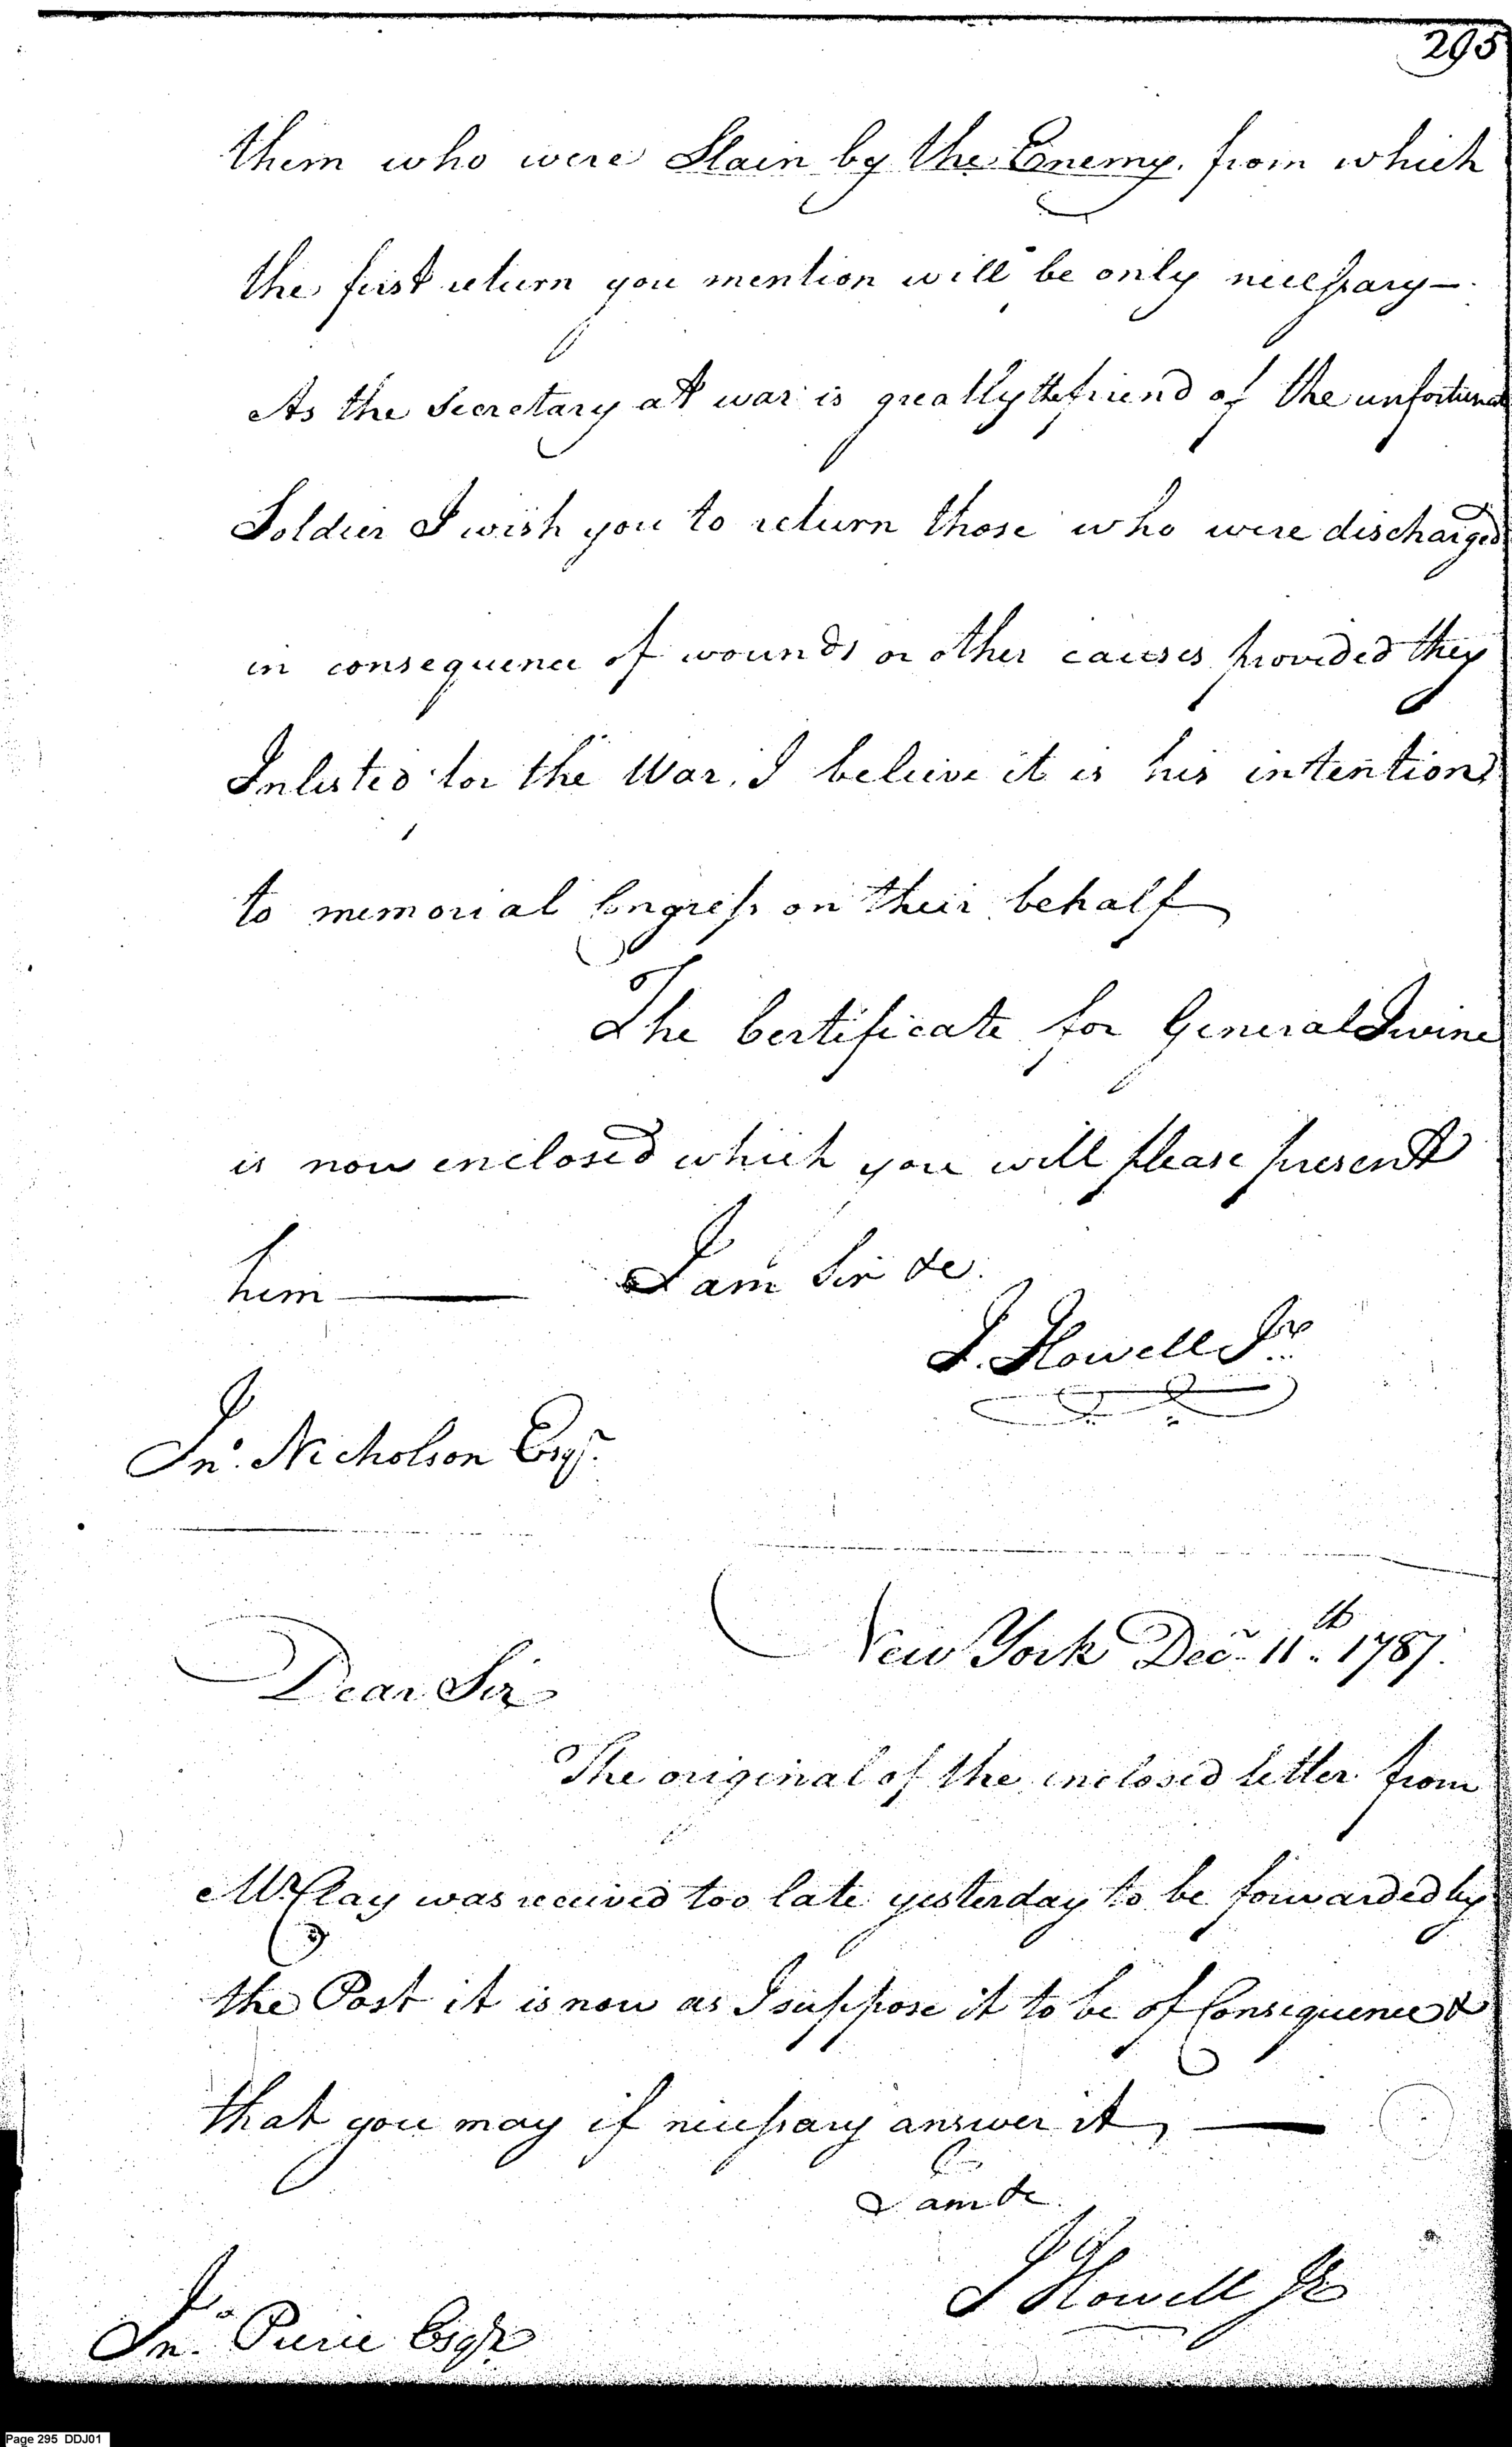 295
them who were Slain by the Enemy, from which
the first return you mention will be only necessary —
As the Secretary at war is greatly the friend of the unfortunate
Soldier I wish you to return those who were discharged
in consequence of wounds or other causes provided they
Inlisted for the War, I believe it is his intention
to memorial Congress on their behalf
The Certificate for General Irvine
is now enclosed which you will please present
him — I am Sir &c.
J. Howell Jr.
Jno. Nicholson Esqr.
New York Decr. 11th. 1787.
Dear Sir
The original of the inclosed letter from
Mr Clay was received too late yesterday to be forwarded by
the Post it is now as I suppose it to be of Consequence &
that you may if necessary answer it, —
I am &c
J Howell Jr
Jno. Pierce Esqr
Page 295 DDJ01